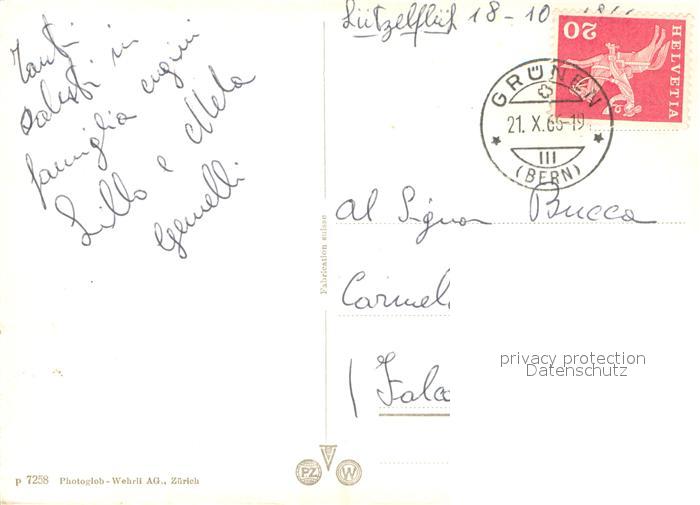 Lützelflüh 18-10
HELVETIA
20
GRÜNEN
21. X. 66-19
III
(BERN)
Tanti
saluti in
famiglia cugini
Lillo e Mela
Gemelli
Fabrication suisse
al Signor Bucca
Carmel
Falc
privacy protection
Datenschutz
PZ
W
p 7258 Photoglob-Wehrli AG., Zürich